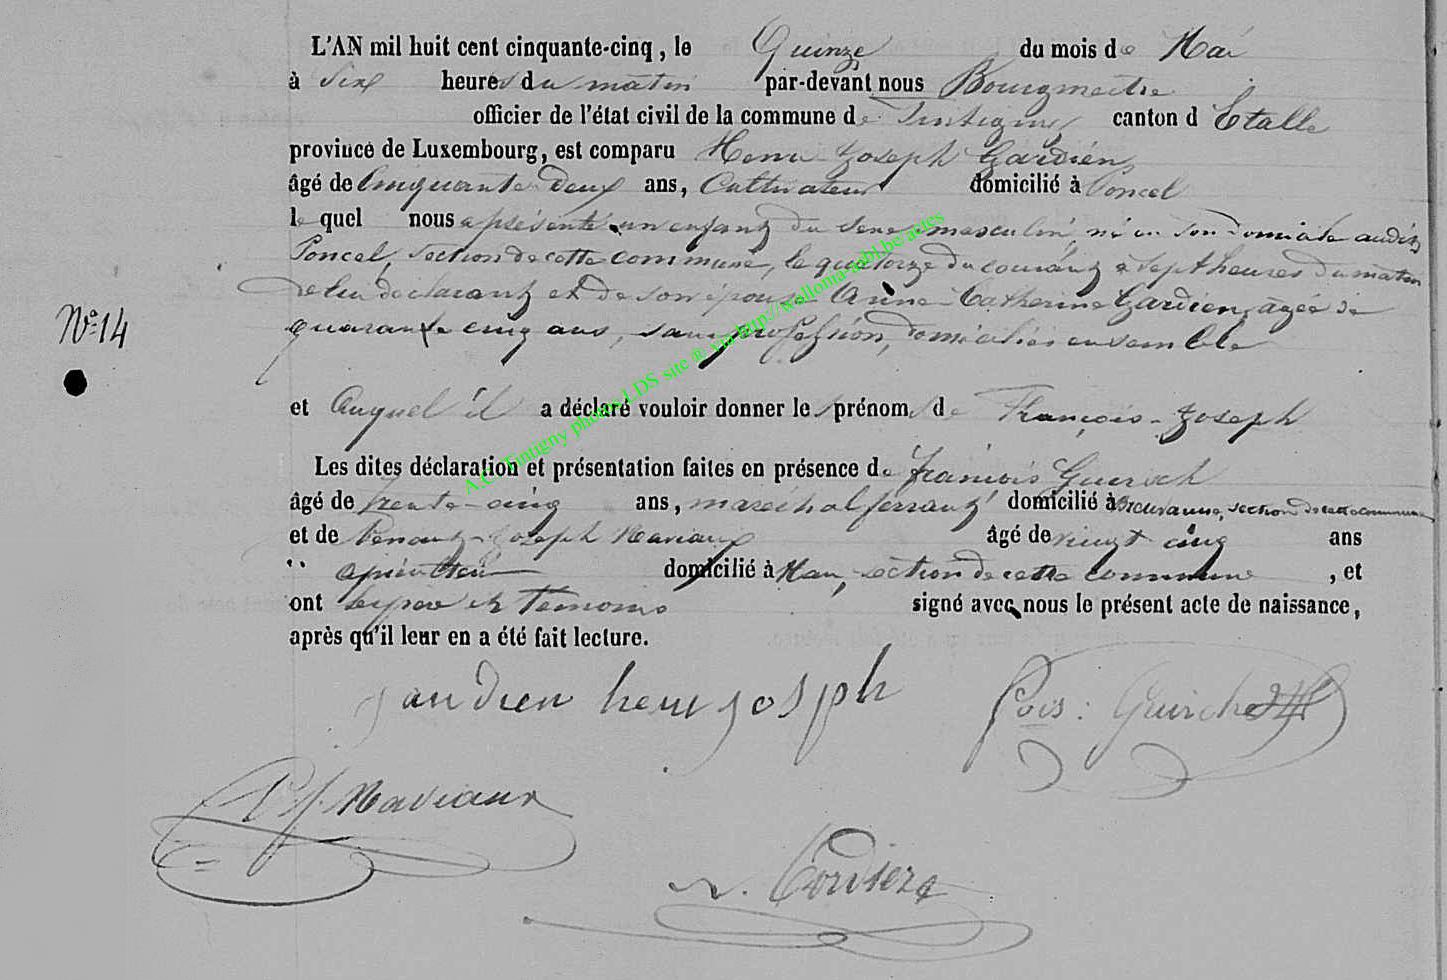 L'AN mil huit cent cinquante-cinq, le Quinze du mois de Mai
à Six heures du matin par-devant nous Bourgmestre
officier de l'état civil de la commune de Tintigny canton d Etalle
province de Luxembourg, est comparu Henri Joseph Gardien
âgé de Cinquante Deux ans, Cultivateur domicilié à Poncel
le quel nous a présenté un enfant du sexe masculin, né en son domicile audit
Poncel, section de cette commune, le quatorze du courant à sept heures du matin
de lui déclarant et de son épouse Anne-Catherine Gardien, agée de
quarante cinq ans, sans profession, domiciliés ensemble
N° 14
et Auquel il a déclaré vouloir donner les prénoms de François-Joseph
Les dites déclaration et présentation faites en présence de françois Guersch
âgé de trente-cinq ans, maréchal ferrant domicilié à section de cette commune
et de Joseph Maviaux âgé de vingt cinq ans
domicilié à Han, section de cette commune, et
ont le père et Temoins signé avec nous le présent acte de naissance,
après qu'il leur en a été fait lecture.
gardien henri joseph
fcois: Guirch
P J Maviaux
Cordier
A.C. Tintigny photos LDS site @ via http://wallonia-asbl.be/actes